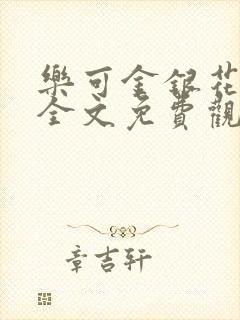 樂可金銀花
全文免費觀
章吉轩